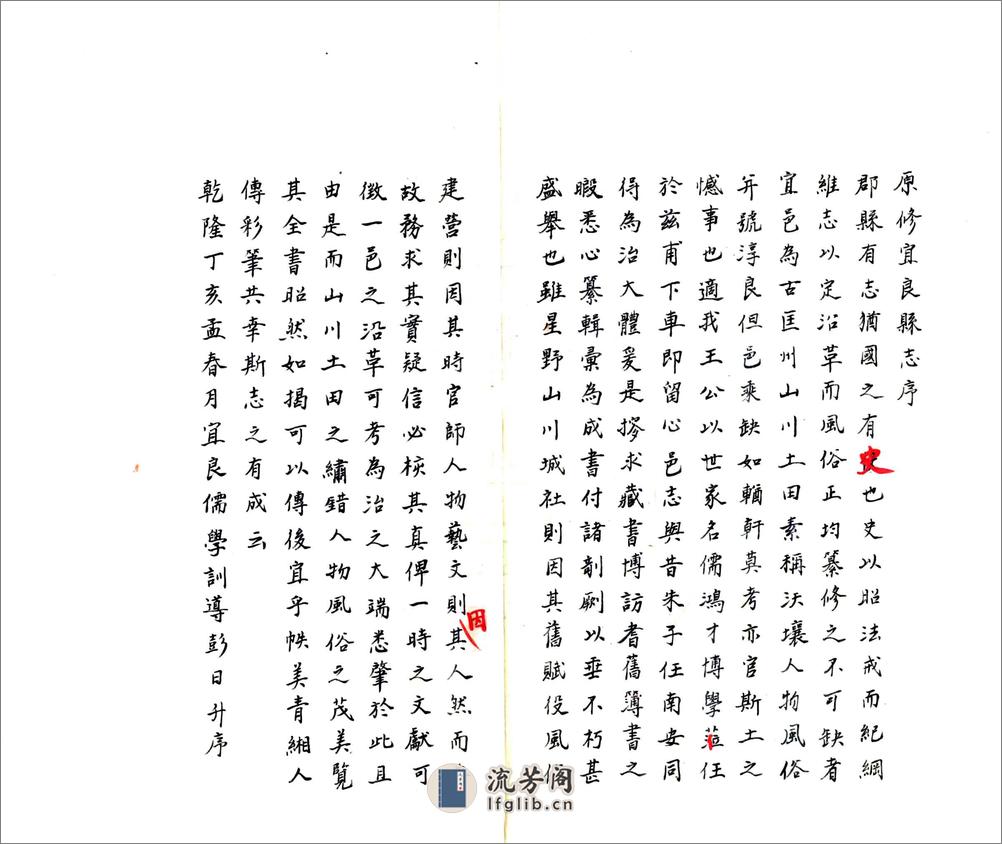 原修宜良縣志序
郡縣有志猶國之有史也史以昭法戒而紀綱
維志以定沿革而風俗正均纂修之不可缺者
宜邑為古匡州山川土田素稱沃壤人物風俗
并號淳良但邑乘缺如輶軒莫考亦官斯土之
憾事也適我王公以世家名儒鴻才博學蒞任
於茲甫下車即留心邑志與昔朱子任南安同
得為治大體爰是搜求藏書博訪耆舊簿書之
暇悉心纂輯彙為成書付諸剞劂以垂不朽甚
盛舉也雖星野山川城社則因其舊賦役風俗
建營則因其時官師人物藝文則因其人然而
故務求其實疑信必核其真俾一時之文獻可
徵一邑之沿革可考為治之大端悉肇於此且
由是而山川土田之繡錯人物風俗之茂美覽
其全書昭然如揭可以傳後宜乎帙美青緗人
傳彩筆共幸斯志之有成云
乾隆丁亥孟春月宜良儒學訓導彭日升序
流芳阁
lfglib.cn